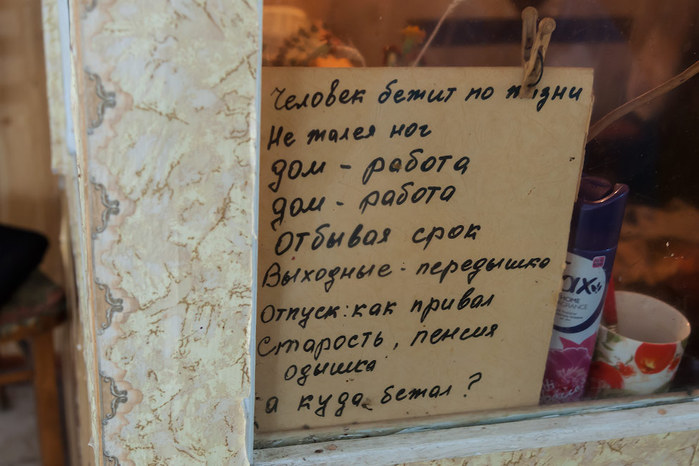 Человек бежит по жизни
Не жалея ног
дом - работа
дом - работа
Отбывая срок
Выходные - передышка
Отпуск: как привал
Старость, пенсия
одышка
а куда бежал?
ax
HOME